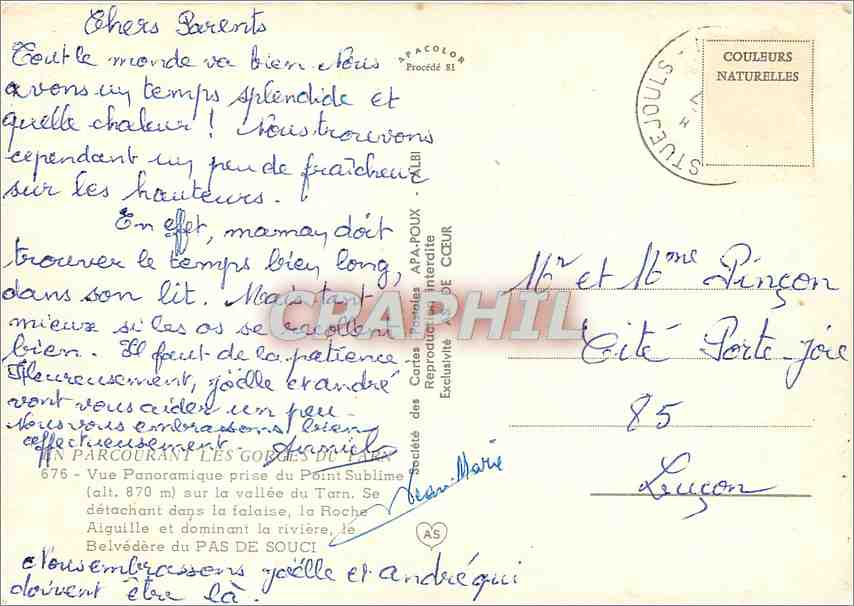 Chers Parents
Tout le monde va bien. Nous
avons un temps splendide et
quelle chaleur ! Nous trouvons
cependant un peu de fraîcheur
sur les hauteurs.
En effet, maman doit
trouver le temps bien long,
dans son lit. Mais tant
mieux si les os se recollent
bien. Il faut de la patience.
Heureusement, Joëlle et andré
vont vous aider un peu.
Nous vous embrassons bien
affectueusement. Annick
Jean-Marie
Nous embrassons Joëlle et andré qui
doivent être là.
EN PARCOURANT LES GORGES DU TARN
676 - Vue Panoramique prise du Point Sublime
(alt. 870 m) sur la vallée du Tarn. Se
détachant dans la falaise, la Roche
Aiguille et dominant la rivière, le
Belvédère du PAS DE SOUCI
AS
APACOLOR
Procédé 81
Société des Cartes Postales APA-POUX - ALBI
Reproduction interdite
Exclusivité AS DE CŒUR
STUEJOULS
COULEURS
NATURELLES
Mr et Mme Pinçon
Cité Porte-Joie
85
Luçon
CPARPHIL